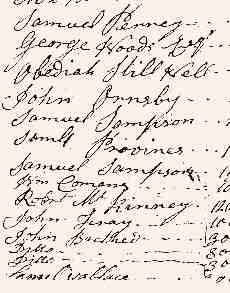 Samuel Penney
George Woods Esqr
Obediah Still Hell
John Ormsby
Samuel Sampson
Saml Provines
Samuel Sampson
Wm Comons
Robert McKinney
John
John
Ditto
Ditto
Saml Wallace